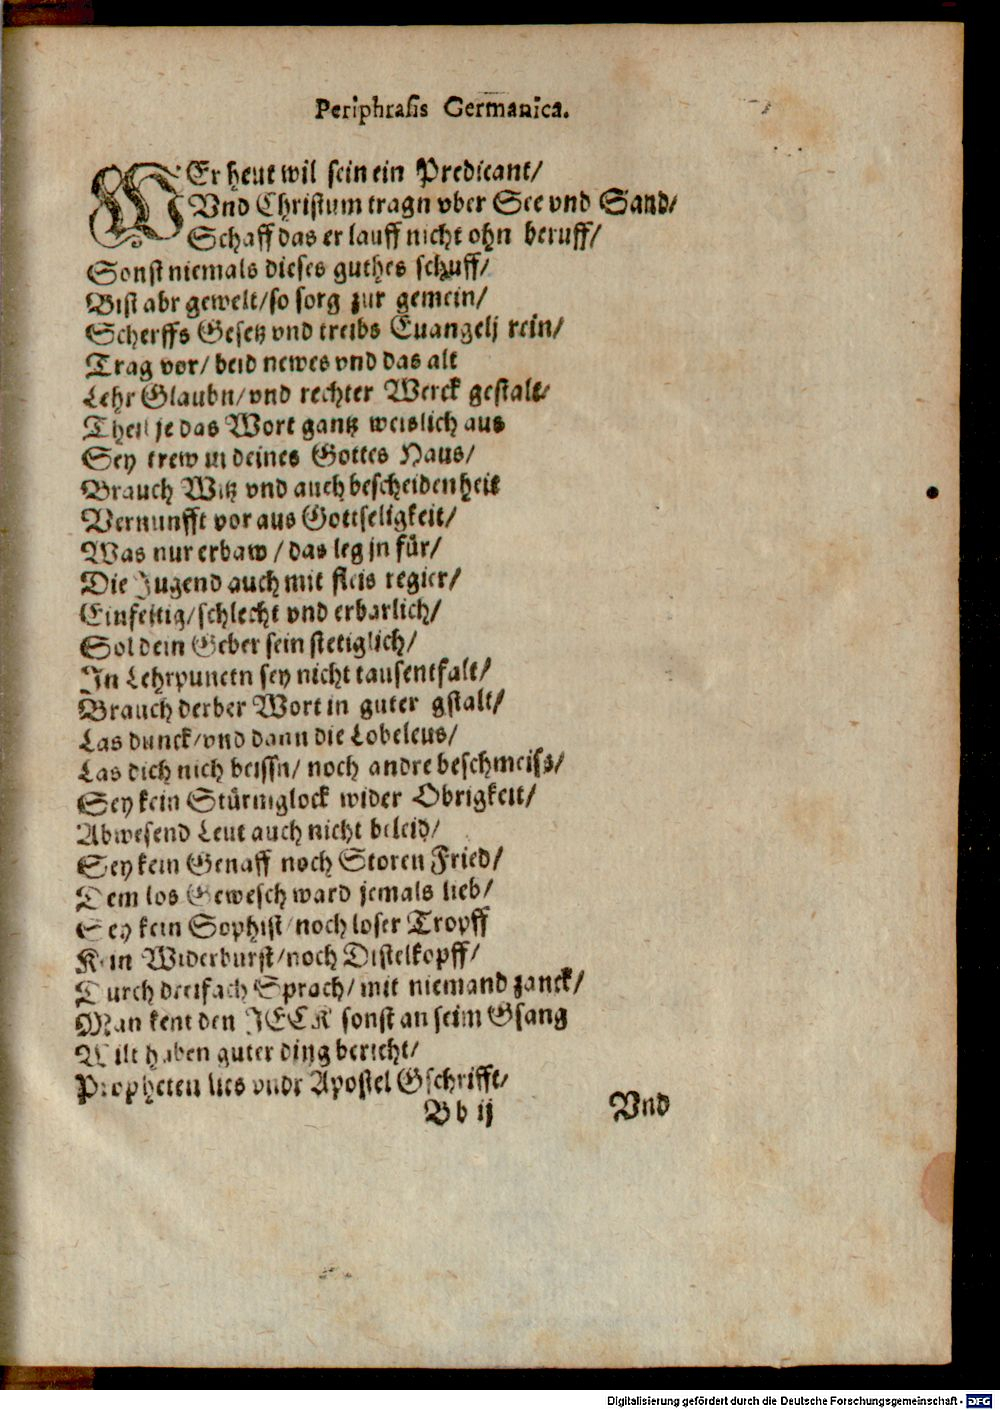 Periphrasis Germanica.
WEr heut wil sein ein Predicant/
Vnd Christum tragn vber See vnd Sand/
Schaff das er lauff nicht ohn beruff/
Sonst niemals dieses guthes schuff/
Bist abr gewelt/so sorg zur gemein/
Scherffs Gesetz vnd treibs Euangelj rein/
Trag vor/ beid newes vnd das alt
Lehr Glaubn/vnd rechter Werck gestalt/
Theil je das Wort gantz weislich aus
Sey trew in deines Gottes Haus/
Brauch Witz vnd auch bescheidenheit
Vernunfft vor aus Gottseligkeit/
Was nur erbaw / das leg jn für/
Die Jugend auch mit fleis regier/
Einfeltig/schlecht vnd erbarlich/
Sol dein Geber sein stetiglich/
In Lehrpunctn sey nicht tausentfalt/
Brauch derber Wort in guter gstalt/
Las dunck/vnd dann die Lobeleus/
Las dich nich beissn/ noch andre beschmeiss/
Sey kein Stürmglock wider Obrigkeit/
Abwesend Leut auch nicht beleid/
Sey kein Genaff noch Storen Fried/
Dem los Gewesch ward jemals lieb/
Sey kein Sophist/noch loser Tropff
Kein Widerburst/noch Distelkopff/
Durch dreifach Sprach/ mit niemand zanck/
Man kent den JECK sonst an seim Gsang
Wilt haben guter ding bericht/
Propheten lies vndr Apostel Gschrifft/
Bb ij Vnd
Digitalisierung gefördert durch die Deutsche Forschungsgemeinschaft - DFG